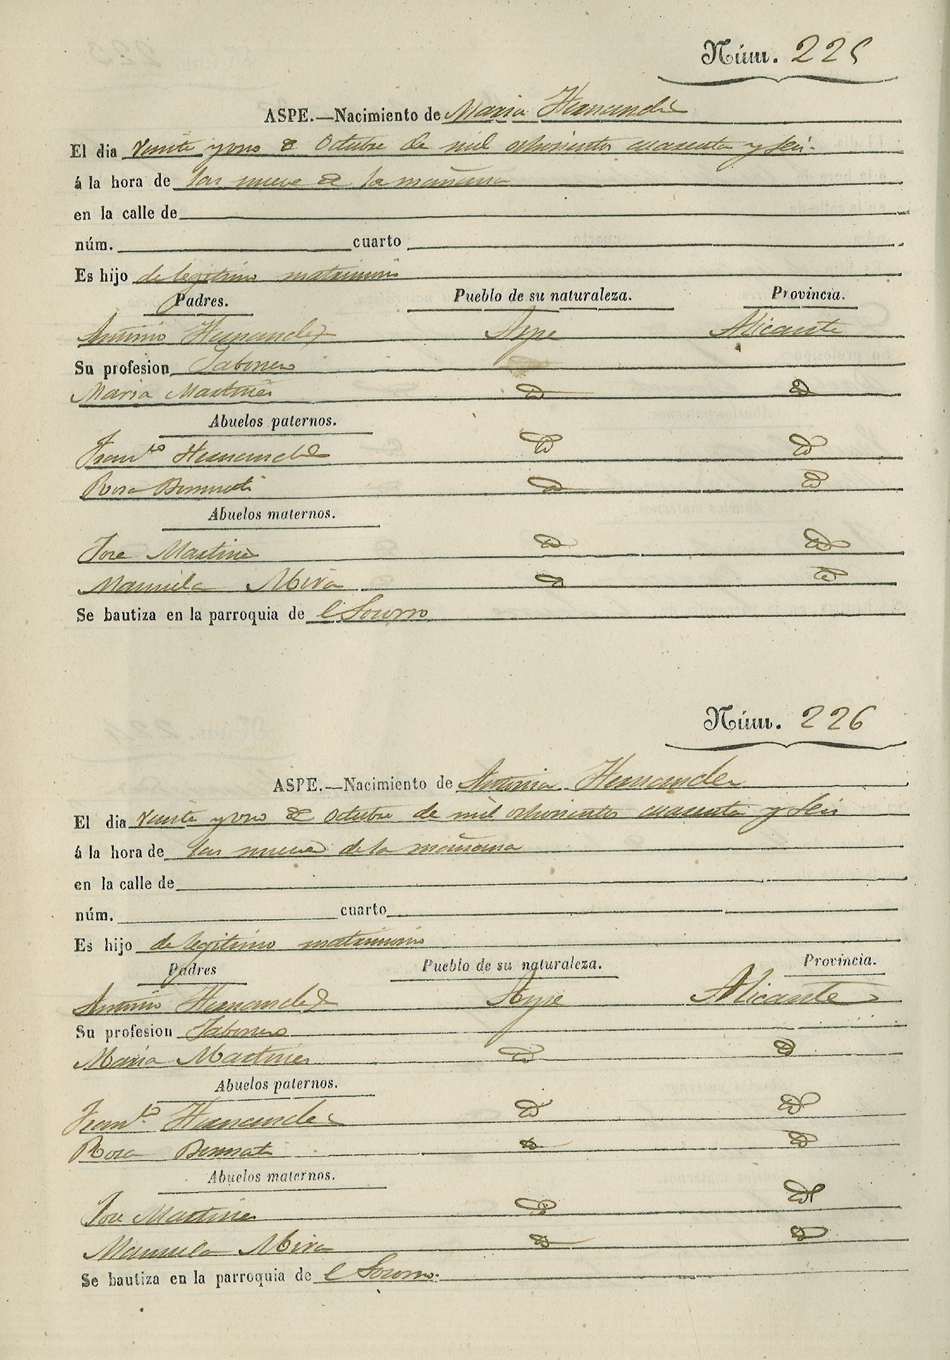 Núm. 225
ASPE.—Nacimiento de Maria Hernandez
El dia veinte y uno de Octubre de mil ochocientos cuarenta y seis.
á la hora de las nueve de la mañana
en la calle de
núm. cuarto
Es hijo de legitimo matrimonio
Padres. Pueblo de su naturaleza. Provincia.
Antonio Hernandez Aspe Alicante
Su profesion Jabonero
Maria Martines D D
Abuelos paternos.
Fran.co Hernandez D D
Rosa D D
Abuelos maternos.
Jose Martines D D
Manuela Mira D D
Se bautiza en la parroquia de el Socorro
Núm. 226
ASPE.—Nacimiento de Antonia Hernandez
El dia veinte y uno de Octubre de mil ochocientos cuarenta y seis
á la hora de las nueve de la mañana
en la calle de
núm. cuarto
Es hijo de legitimo matrimonio
Padres Pueblo de su naturaleza. Provincia.
Antonio Hernandez Aspe Alicante
Su profesion Jabonero
Maria Martines D D
Abuelos paternos.
Fran.co Hernandez D D
Rosa D D
Abuelos maternos.
Jose Martines D D
Manuela Mira D D
Se bautiza en la parroquia de el Socorro.